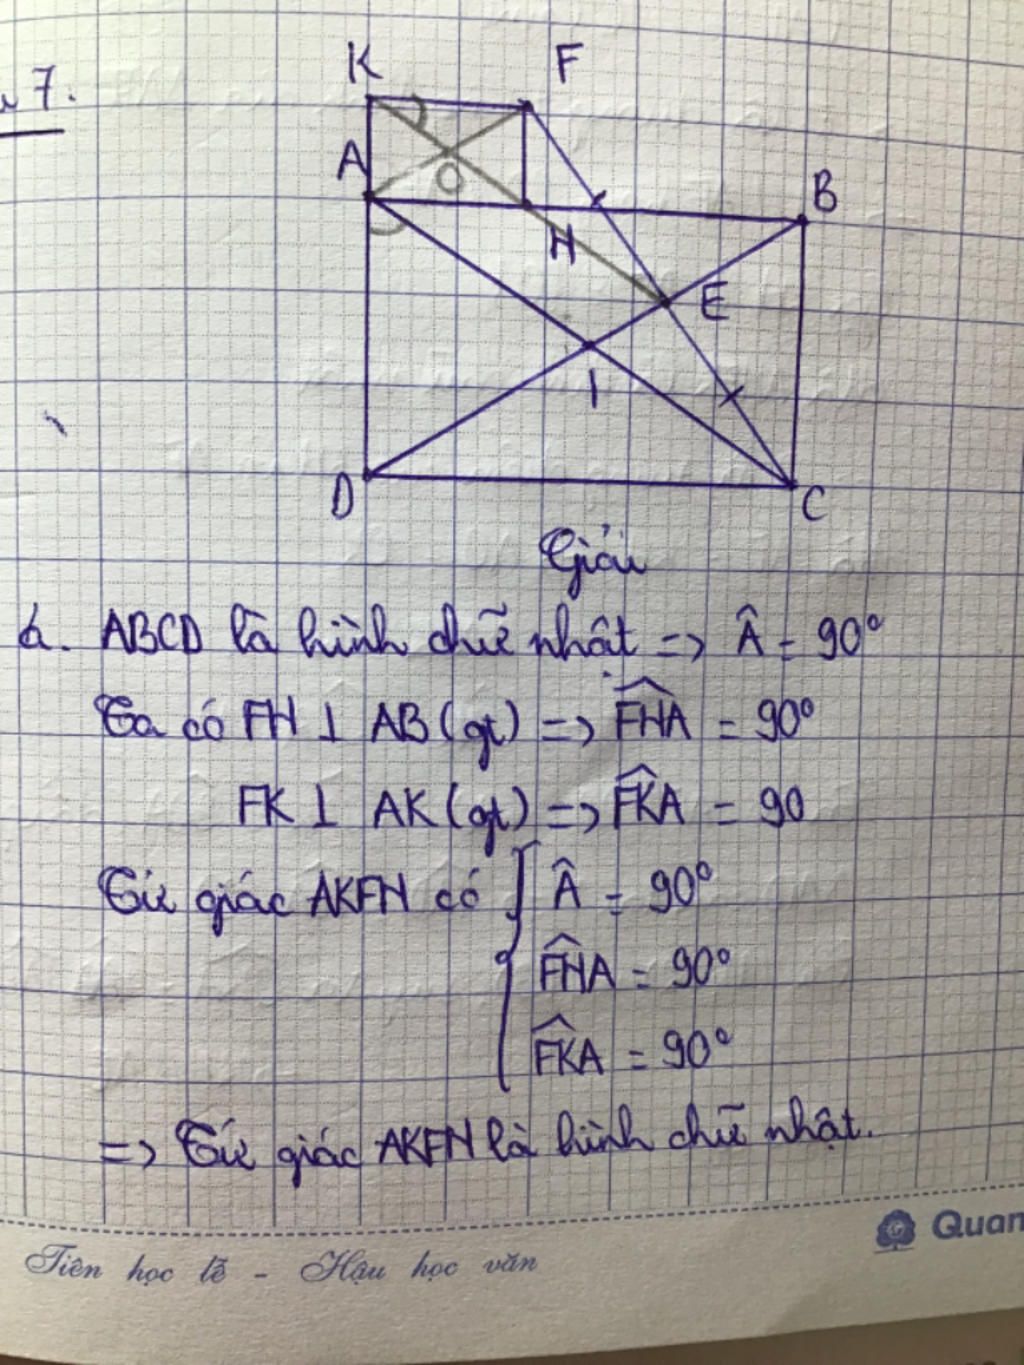 7.
K F
A O B
H
E
I
D C
Giải
a. ABCD là hình chữ nhật => Â = 90°
Ta có FH ⊥ AB (gt) => \widehat{FHA} = 90°
FK ⊥ AK (gt) => \widehat{FKA} = 90
Tứ giác AKFH có { Â = 90°
\widehat{FHA} = 90°
\widehat{FKA} = 90°
=> Tứ giác AKFH là hình chữ nhật.
Quan
Tiên học lễ - Hậu học văn